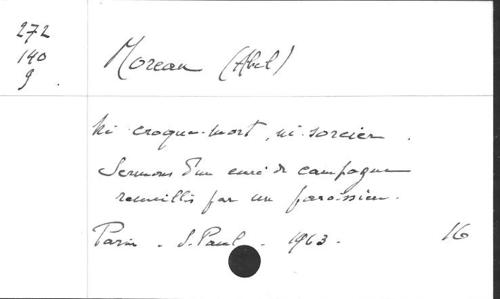 272
140
9.
Moreau (Abel)
Ni croque-mort, ni sorcier.
Sermons d'un curé de campagne
recueillis par un paroissien.
Paris - S. Paul - 1963.
16